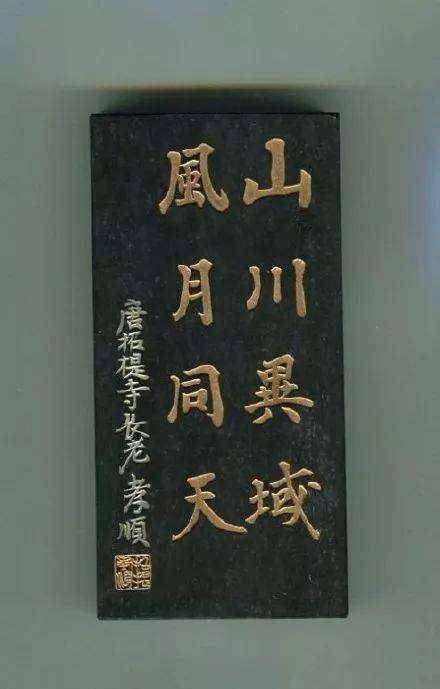 山川異域
風月同天
唐招提寺長老 孝順